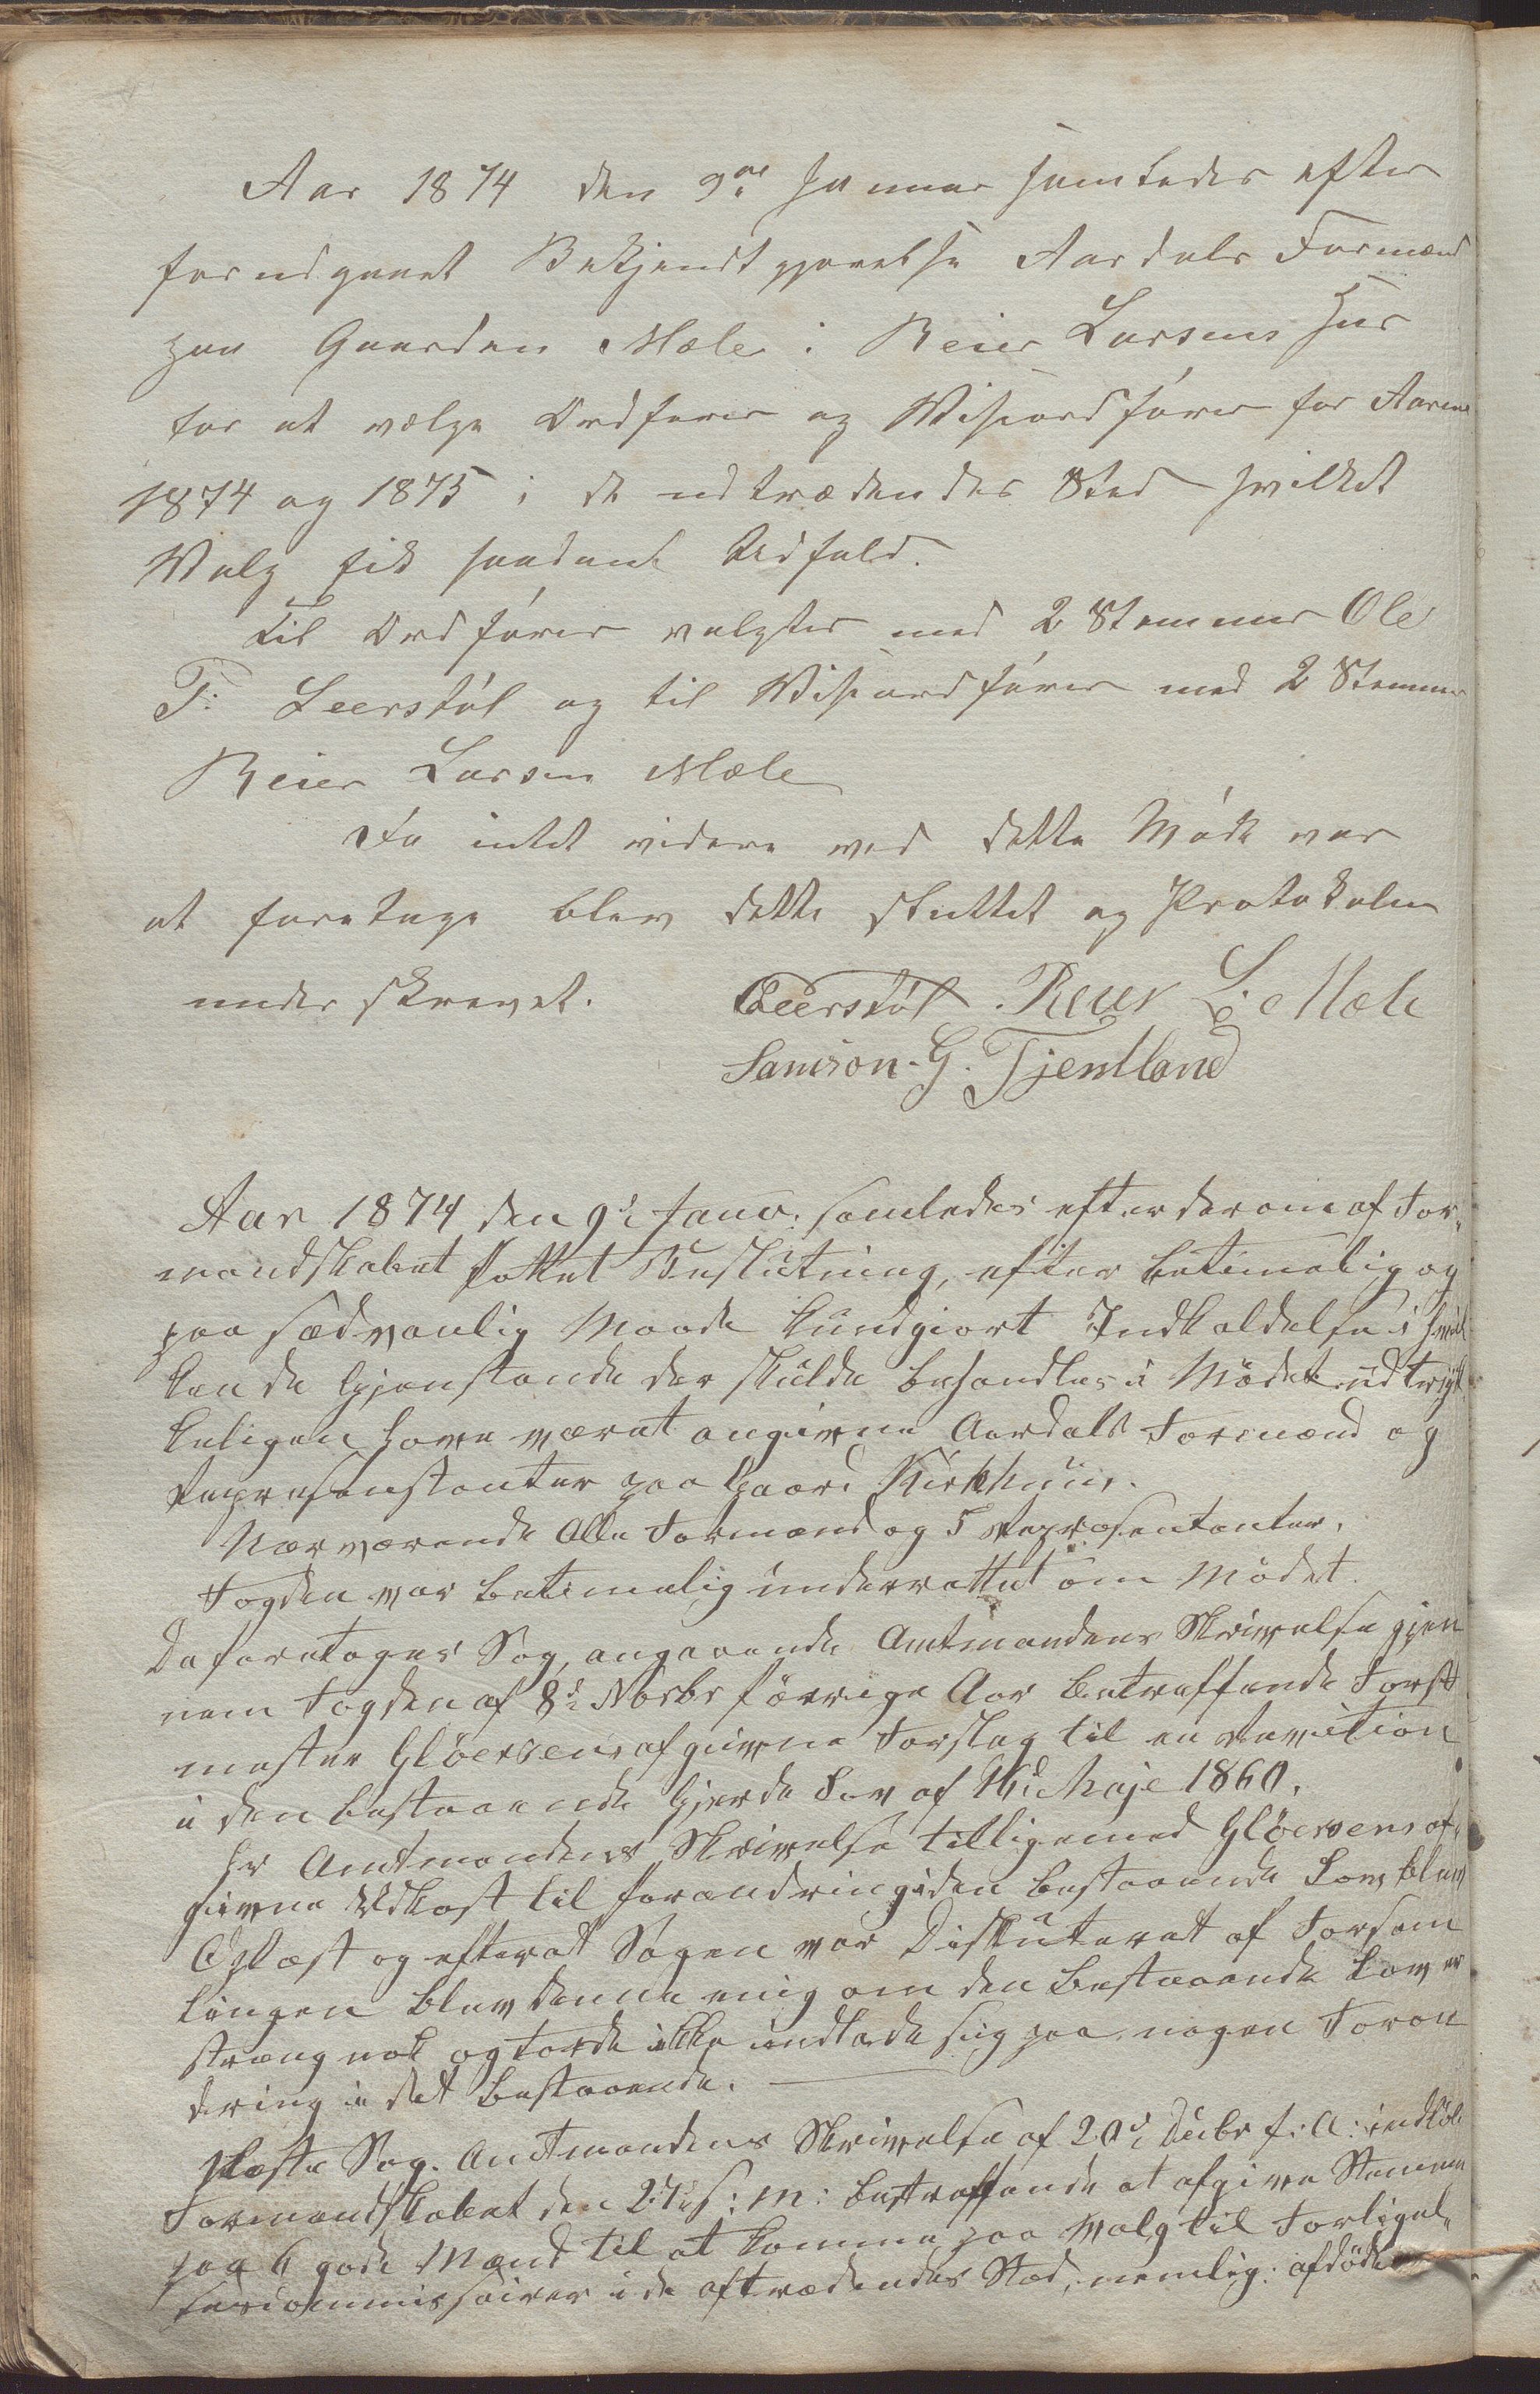 Aar 1874 den 9de Januar samledes efter
forudgaaet Bekjendtgjørelse Aardals Formænd
paa Gaarden Mæle i Reier Larsens Hus
for at vælge Ordfører og Viseordfører for Aarene
1874 og 1875 i de udtrædendes Sted hvilket
Valg fik saadant Udfald.
Til Ordfører valgtes med 2 Stemmer Ole
T: Leerstøl og til Viseordfører med 2 Stemmer
Reier Larsen Mæle
Da intet videre ved dette Møde var
at foretage blev dette sluttet og Protokolen
underskrevet. OLeerstøl. Reier L. Mæle
Samson. G. Tjentland
Aar 1874 den 9de Janv. samledes efter derom af For-
mandskabet fattet Beslutning, efter betimelig og
paa sædvanlig Maade kundgjort Indkaldelse i hvil
ken de Gjenstande der skulde behandles i Mødet udtryk
keligen have været angivne Aardals Formænd og
Repræsenstanter paa Gaard Kirkhuus.
Nærværende Alle Formænd og 5 Repræsentanter.
Fogden var betimelig underrettet om Mødet.
Da foretoges Sag, angaaende Amtmandens Skrivelse gjen
nem Fogden af 8de Novbr forrige Aar betreffende Forst
mester Gløersens afgivne Forslag til en Revition
i den bestaaende Gjerde Lov af 16de Maje 1860.
Hr Amtmandens Skrivelse tilligemed Gløersens af-
givne Udkast til forandring i den bestaaende Lov blev
Oplæst og efterat Sagen var Diskuteret af Forsam
lingen blev denne enig om den bestaaende Lov er
stræng nok og torde ikke indlade sig paa nogen Foran
dring i det bestaaende.
Næste Sag. Amtmandens Skrivelse af 20de Decbr f: A: indkol
Formandskabet den 27de s: M: bestræffende at afgive Stemmer
paa 6 gode Mænd til at komme paa Valg til Forligel-
sescommissairer i de aftrædendes Sted, nemlig: afdøde